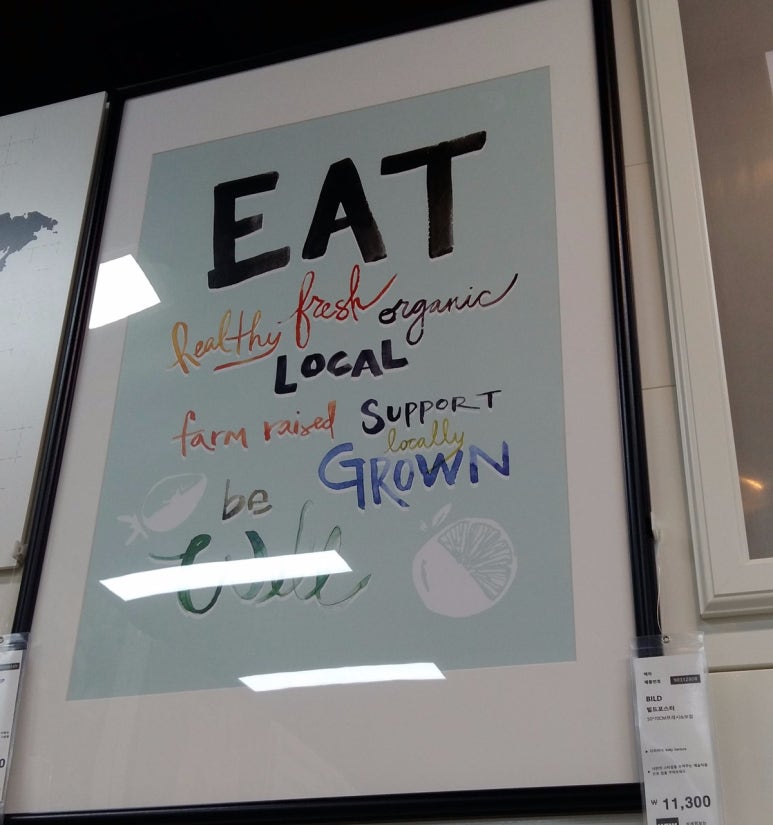 EAT
healthy fresh organic
LOCAL
farm raised SUPPORT
locally
GROWN
be
well
BILD
빌드포스터
₩ 11,300